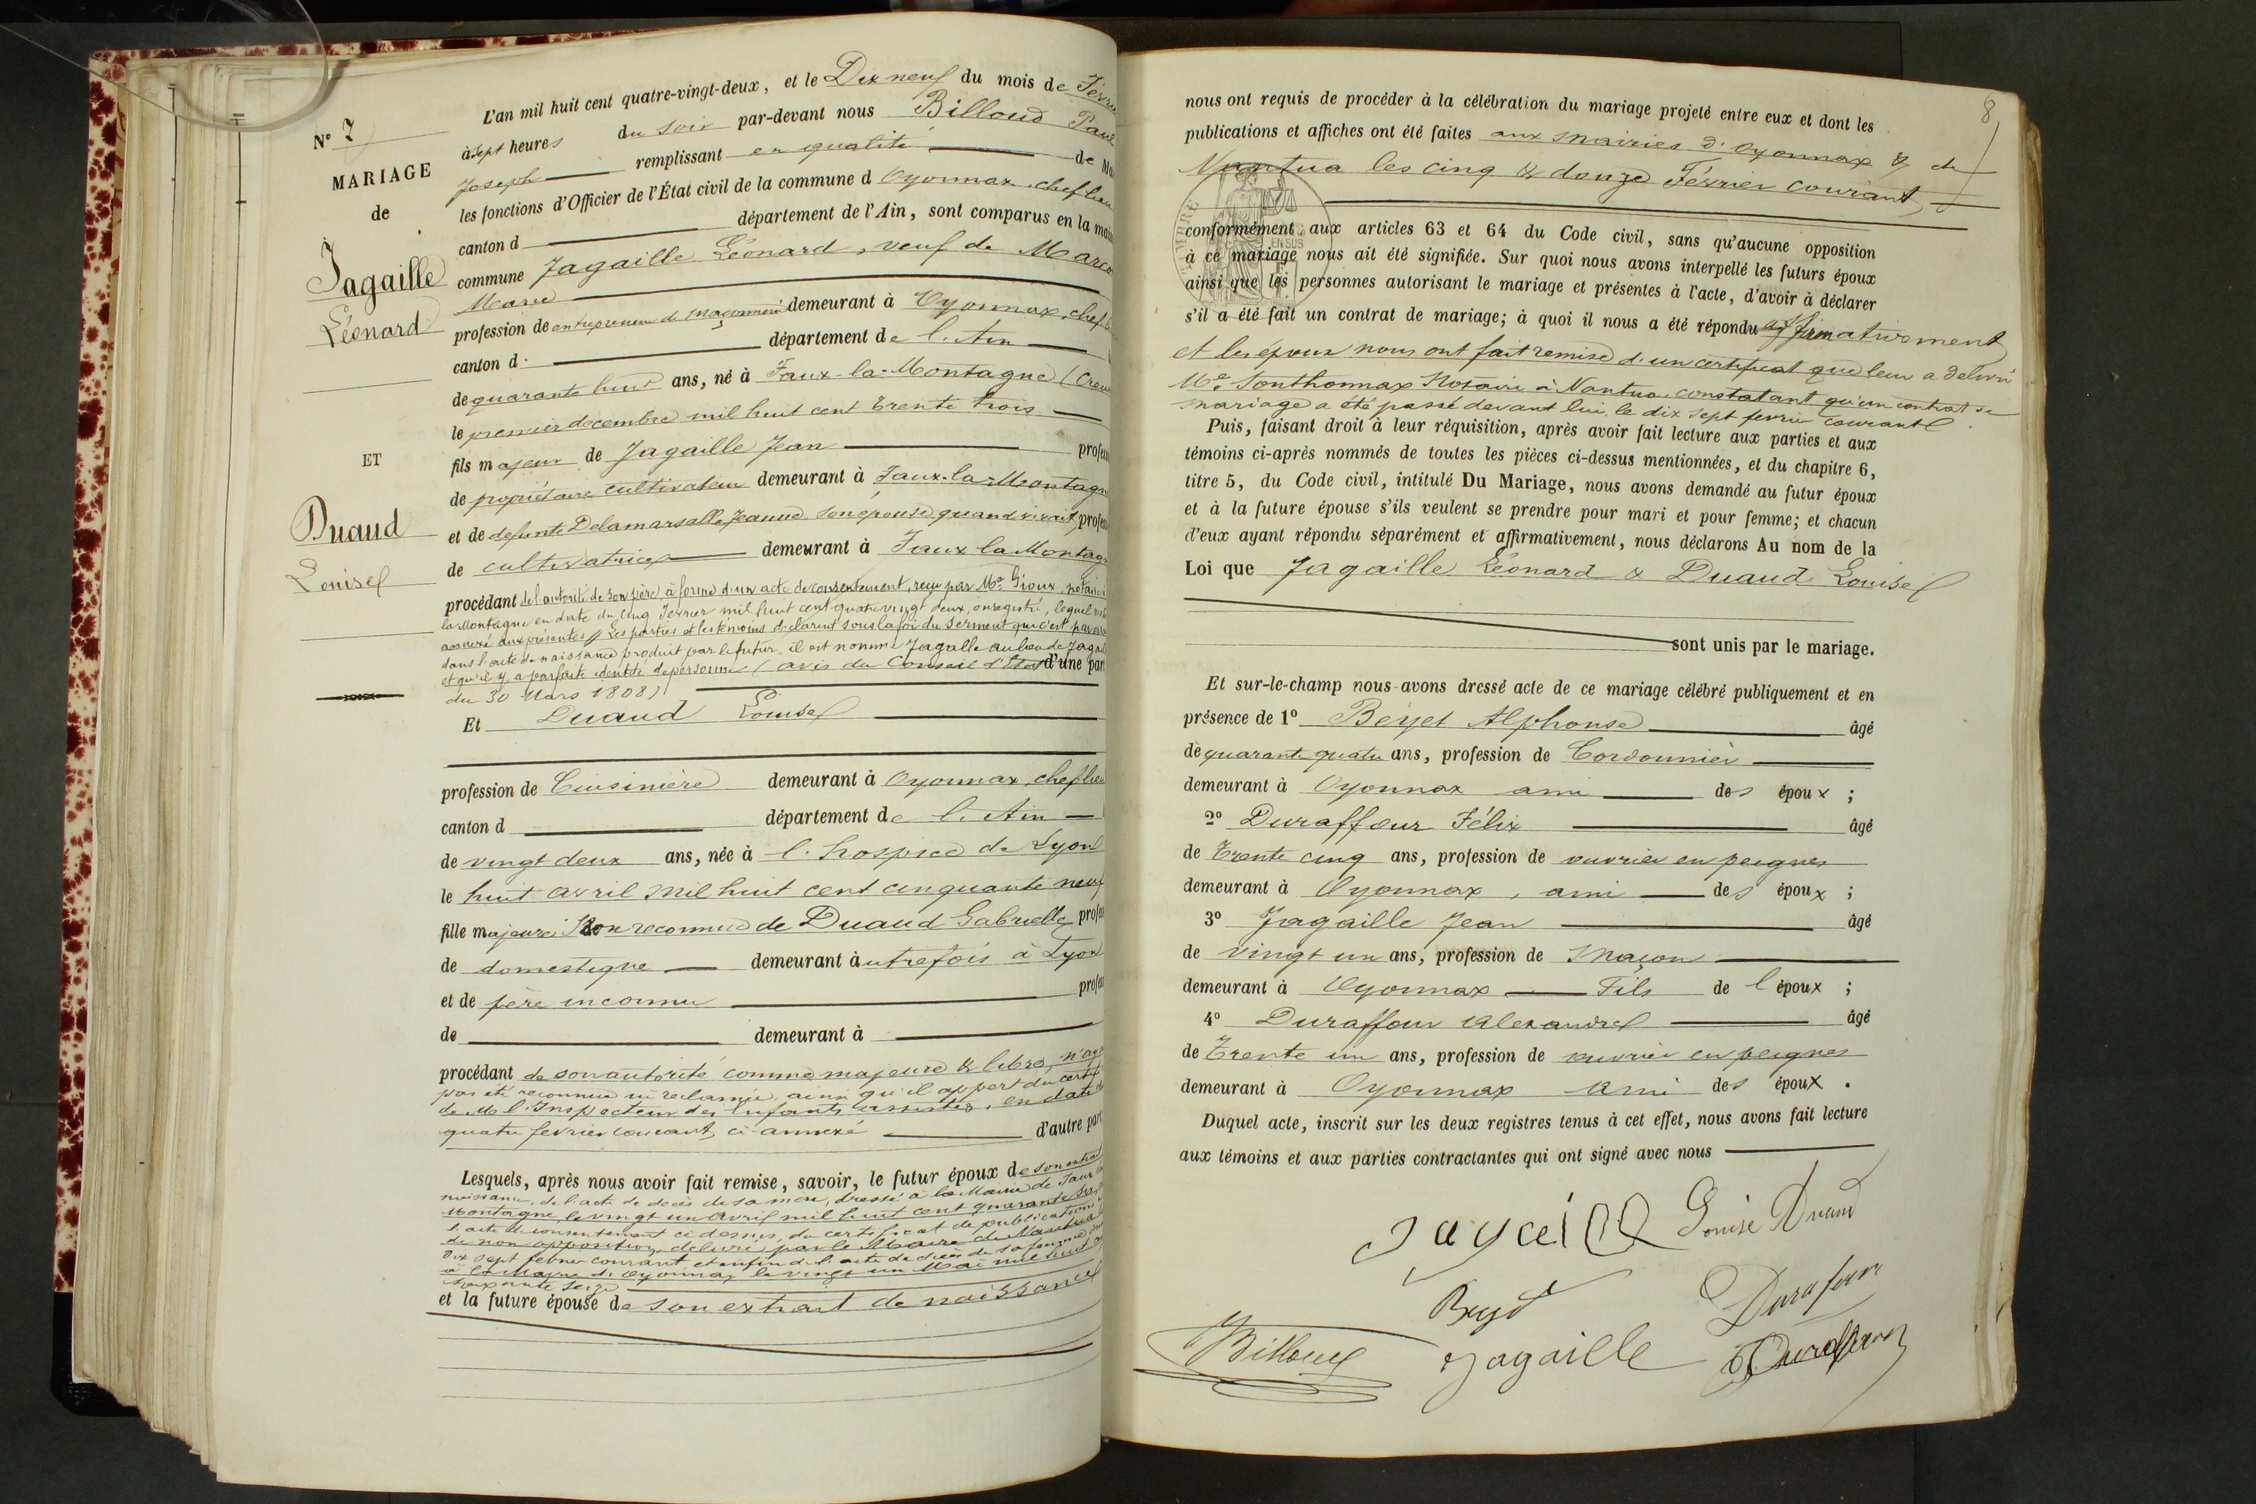 N° 7
MARIAGE
de
Jagaille
Léonard
ET
Duaud
Louise
L'an mil huit cent quatre-vingt-deux, et le Dix neuf du mois de Févri
à sept heures du soir par-devant nous Billoud Paul
Joseph remplissant en qualité de M
les fonctions d'Officier de l'État civil de la commune d Oyonnax, chef lieu
canton d département de l'Ain, sont comparus en la mai
commune Jagaille Léonard, veuf de Marco
Marie
profession de entrepreneur de maçonnerie demeurant à Oyonnax, chef l
canton d département de l'Ain
de quarante huit ans, né à Faux-la-Montagne (Creu
le premier décembre mil huit cent trente trois
fils majeur de Jagaille Jean profes
de propriétaire cultivateur demeurant à Faux-la-Montagn
et de defunte Delamarsalle Jeanne son épouse quand vivait, profes
de cultivatrice demeurant à Faux la Montagn
procédant de l'autorité de son père, à forme d'un acte de consentement, reçu par Me Gioux, notaire
la Montagne en date du cinq Février mil huit cent quatre vingt deux, enregistré, lequel
annexé aux présentes // Les parties et les témoins déclarent sous la foi du serment que c'est par
dans l'acte de naissance produit par le futur, il est nommé Jagalle au lieu de Jaga
et qu'il y a parfaite identité de personne (avis du Conseil d'État d'une par
du 30 Mars 1808)
Et Duaud Louise
profession de Cuisinière demeurant à Oyonnax, chef lieu
canton d département de l'Ain
de vingt deux ans, née à l'hospice de Lyon
le huit avril mil huit cent cinquante neuf
fille majeure non reconnue de Duaud Gabrielle profes
de domestique demeurant autrefois à Lyon
et de père inconnu profes
de demeurant à
procédant de son autorité comme majeure & libre, n'aya
pas été reconnue ni réclamée, ainsi qu'il appert du certif
de Mr l'Inspecteur des Enfants assistés, en date d
quatre fevrier courant, ci-annexé d'autre part
Lesquels, après nous avoir fait remise, savoir, le futur époux de son extrait
naissance, de l'acte de décès de sa mère, dressé à la Mairie de Faux
Montagne, le vingt un avril mil huit cent quarante
l'acte de consentement ci dessus, du certificat de publication
de non opposition, délivré par le Maire de Nantua
dix sept fevrier courant et enfin de l'acte de décès de sa femme
à la Mairie d'Oyonnax le vingt un Mai mil huit c
soixante seize
et la future épouse de son extrait de naissance
8
nous ont requis de procéder à la célébration du mariage projeté entre eux et dont les
publications et affiches ont été faites aux Mairies d'Oyonnax & de
Nantua les cinq & douze Février courant,
conformément aux articles 63 et 64 du Code civil, sans qu'aucune opposition
à ce mariage nous ait été signifiée. Sur quoi nous avons interpellé les futurs époux
ainsi que les personnes autorisant le mariage et présentes à l'acte, d'avoir à déclarer
s'il a été fait un contrat de mariage; à quoi il nous a été répondu affirmativement
et les époux nous ont fait remise d'un certificat que leur a délivré
Me Tonthonnax Notaire à Nantua constatant qu'un contrat de
mariage a été passé devant lui, le dix sept fevrier courant.
Puis, faisant droit à leur réquisition, après avoir fait lecture aux parties et aux
témoins ci-après nommés de toutes les pièces ci-dessus mentionnées, et du chapitre 6,
titre 5, du Code civil, intitulé Du Mariage, nous avons demandé au futur époux
et à la future épouse s'ils veulent se prendre pour mari et pour femme; et chacun
d'eux ayant répondu séparément et affirmativement, nous déclarons Au nom de la
Loi que Jagaille Léonard & Duaud Louise
sont unis par le mariage.
Et sur-le-champ nous avons dressé acte de ce mariage célébré publiquement et en
présence de 1° Beyet Alphonse âgé
de quarante quatre ans, profession de Cordonnier
demeurant à Oyonnax ami des époux ;
2° Duraffour Félix âgé
de Trente cinq ans, profession de ouvrier en peignes
demeurant à Oyonnax, ami des époux ;
3° Jagaille Jean âgé
de vingt un ans, profession de Maçon
demeurant à Oyonnax Fils de l'époux ;
4° Duraffour Alexandre âgé
de Trente un ans, profession de ouvrier en peignes
demeurant à Oyonnax ami des époux .
Duquel acte, inscrit sur les deux registres tenus à cet effet, nous avons fait lecture
aux témoins et aux parties contractantes qui ont signé avec nous
Louise Duaud
Beyet
Billoud
Jagaille